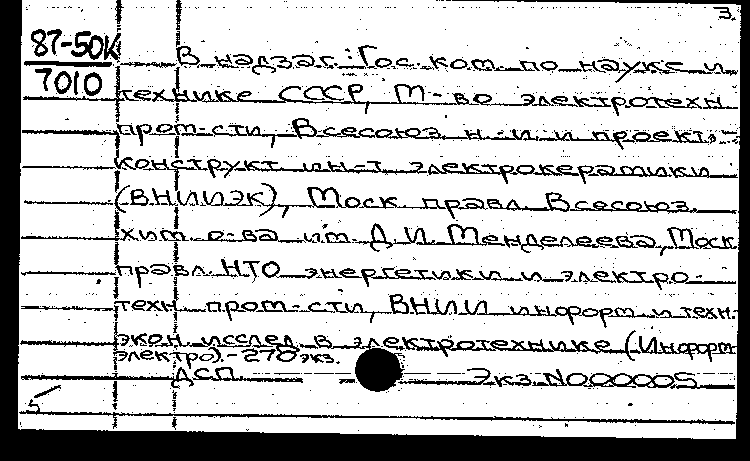 3.
87-50К
7010
В надзаг.: Гос. ком. по науке и
технике СССР, М-во электротехн.
пром-сти, Всесоюз. н.-и. и проект.-
конструкт. ин-т электрокерамики
(ВНИИЭК), Моск. правл. Всесоюз.
хим. о-ва им. Д. И. Менделеева, Моск.
правл. НТО энергетики и электро-
техн. пром-сти, ВНИИ информ. и техн.-
экон. исслед. в электротехнике (Информ-
электро). - 270 экз.
ДСП. Экз. N000005
5